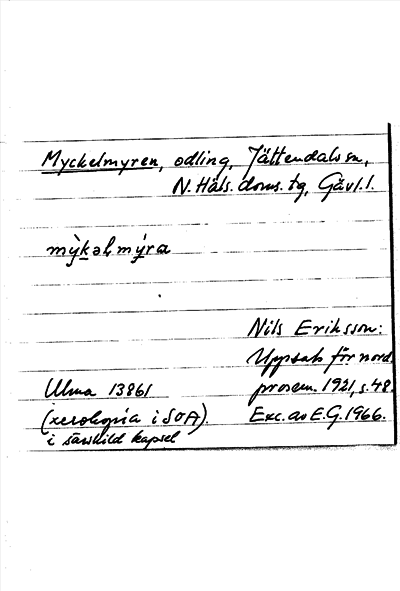 Myckelmyren, odling, Jättendals sn,
N. Häls. doms. tg, Gävl. l.
mỳkəlmýra
Nils Eriksson:
Uppsats för nord.
Ulma 13861 prosem. 1921, s. 48.
(xerokopia i SOA). Exc. av E.G. 1966.
i särskild kapsel